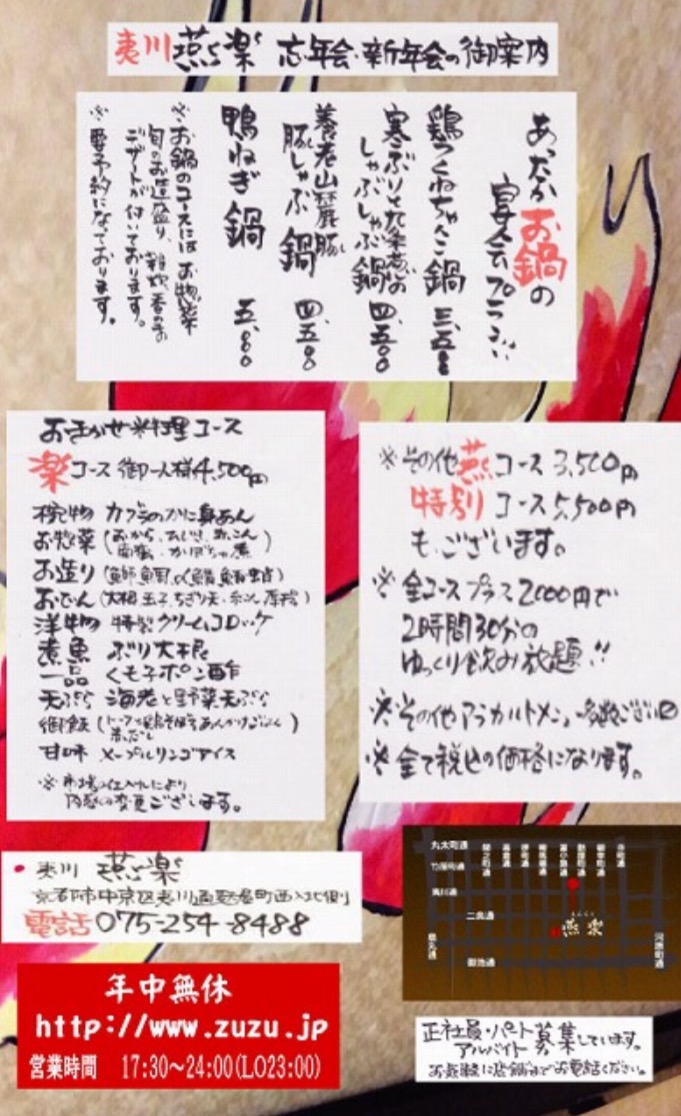 夷川 燕楽 忘年会・新年会の御案内
あったかお鍋の
宴会プラン
鶏つくねちゃんこ鍋 三、五〇〇
寒ぶりと九条葱の
しゃぶしゃぶ鍋 四、五〇〇
養老山麓豚
豚しゃぶ鍋 四、五〇〇
鴨ねぎ鍋 五、〇〇
※お鍋のコースには お惣菜
旬のお造盛り、雑炊、香の物
デザートが付いております。
※要予約になっております。
おまかせ料理コース
楽コース 御一人様4,500円
椀物 カブラのかに身あん
お惣菜
お造り
おでん (大根、玉子、ちぎり天
洋物 特製クリームコロッケ
煮魚 ぶり大根
一品 くも子ポン酢
天ぷら 海老と野菜天ぷら
御飯
甘味 メープルリンゴアイス
※市場の仕入れにより
内容の変更ございます。
※その他燕コース 3,500円
特別コース5,500円
もございます。
※全コースプラス2000円で
2時間30分の
ゆっくり飲み放題!!
※その他アラカルトメニュー多数ございます
※全て税込の価格になります。
夷川 燕楽
京都市中京区夷川通麸屋町西入北側
電話 075-254-8488
丸太町通
竹屋町通
夷川通
二条通
御池通
河原町通
燕楽
年中無休
http://www.zuzu.jp
営業時間 17:30〜24:00(LO23:00)
正社員・パート
アルバイト募集しています。
お気軽に店舗までお電話ください。